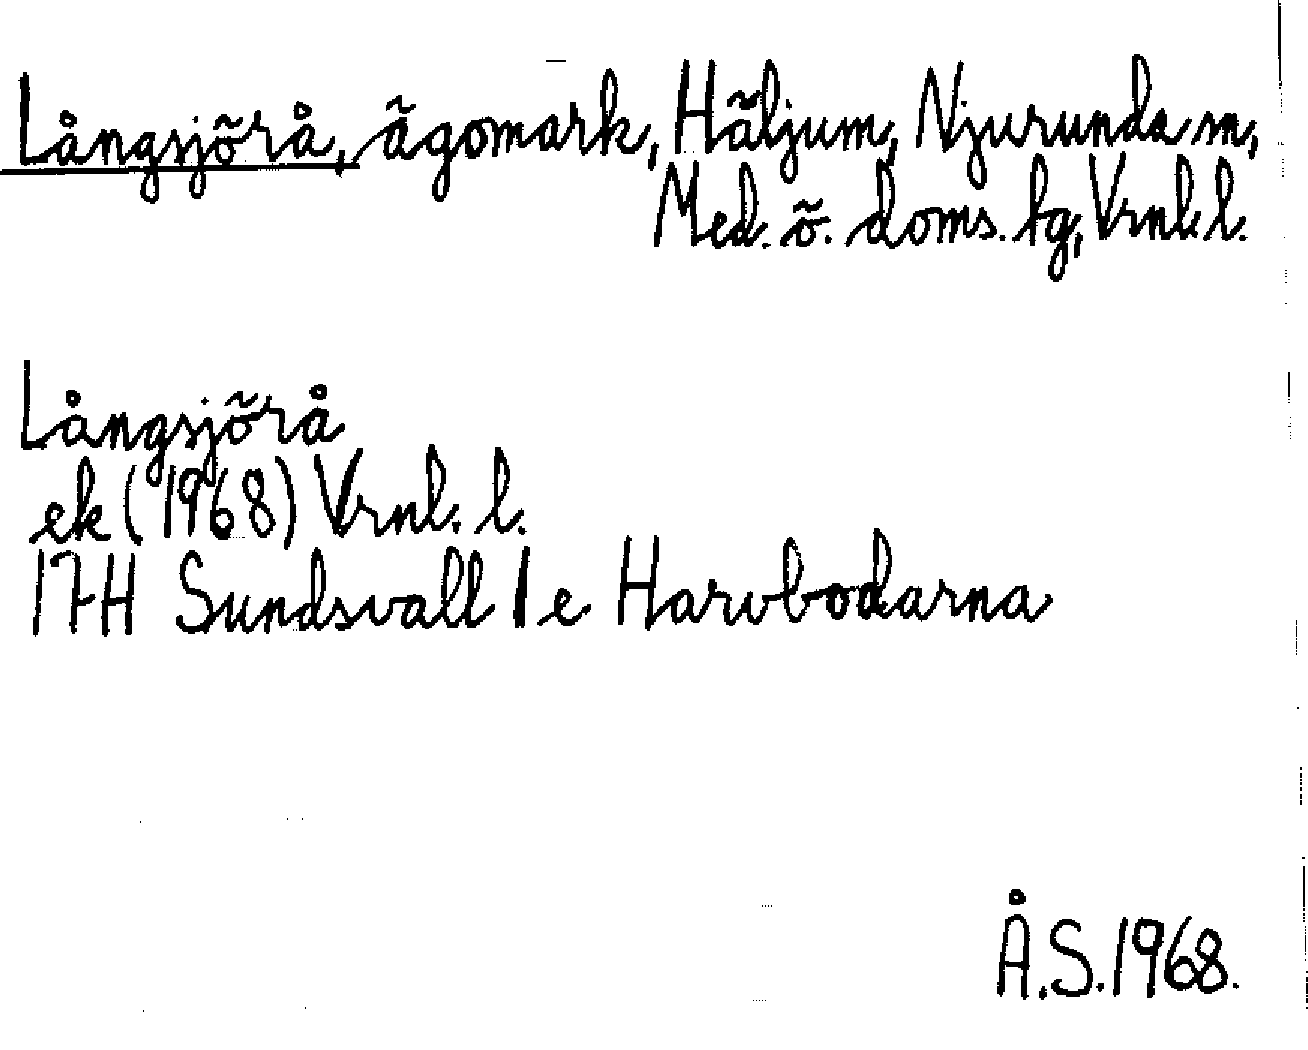 Långsjörå, ägomark, Häljum, Njurunda sn,
Med. ö. doms. fg, Vrnl. l.
Långsjörå
ek (1968) Vrnl. l.
17H Sundsvall 1 e Harvbodarna
Å.S. 1968.